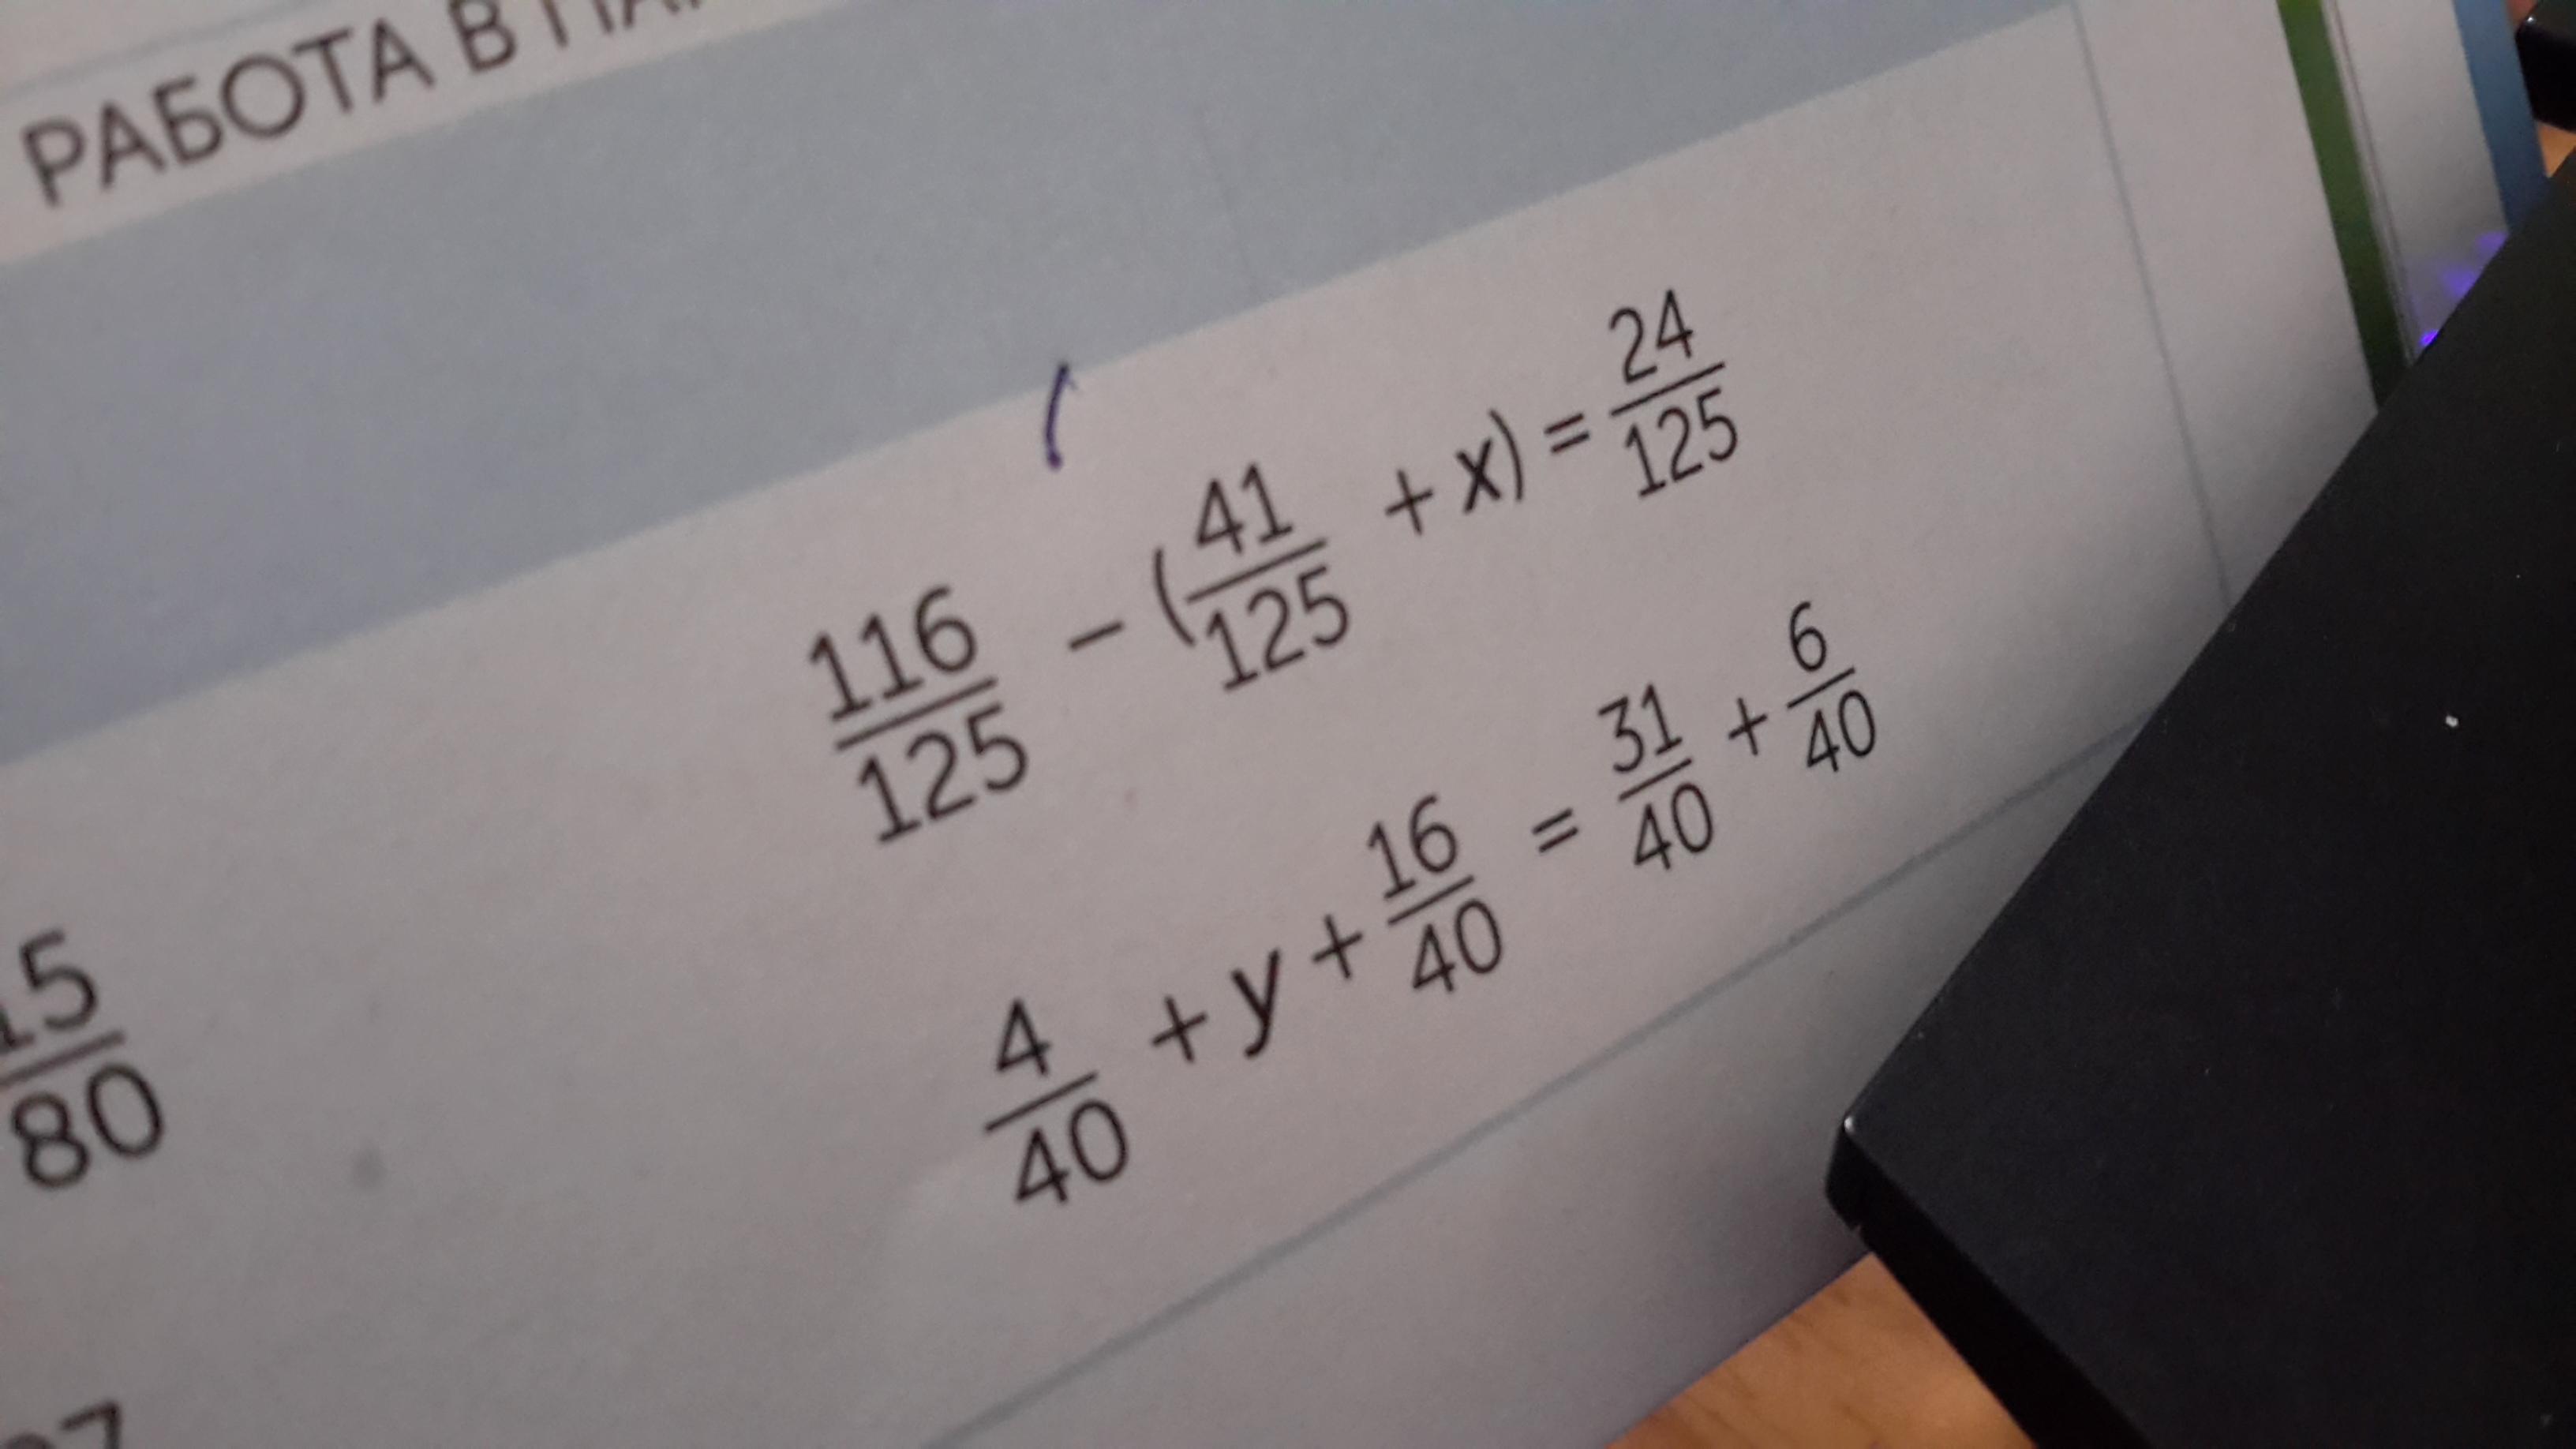 РАБОТА В
116/125 − (41/125 + x) = 24/125
4/40 + y + 16/40 = 31/40 + 6/40
15/80